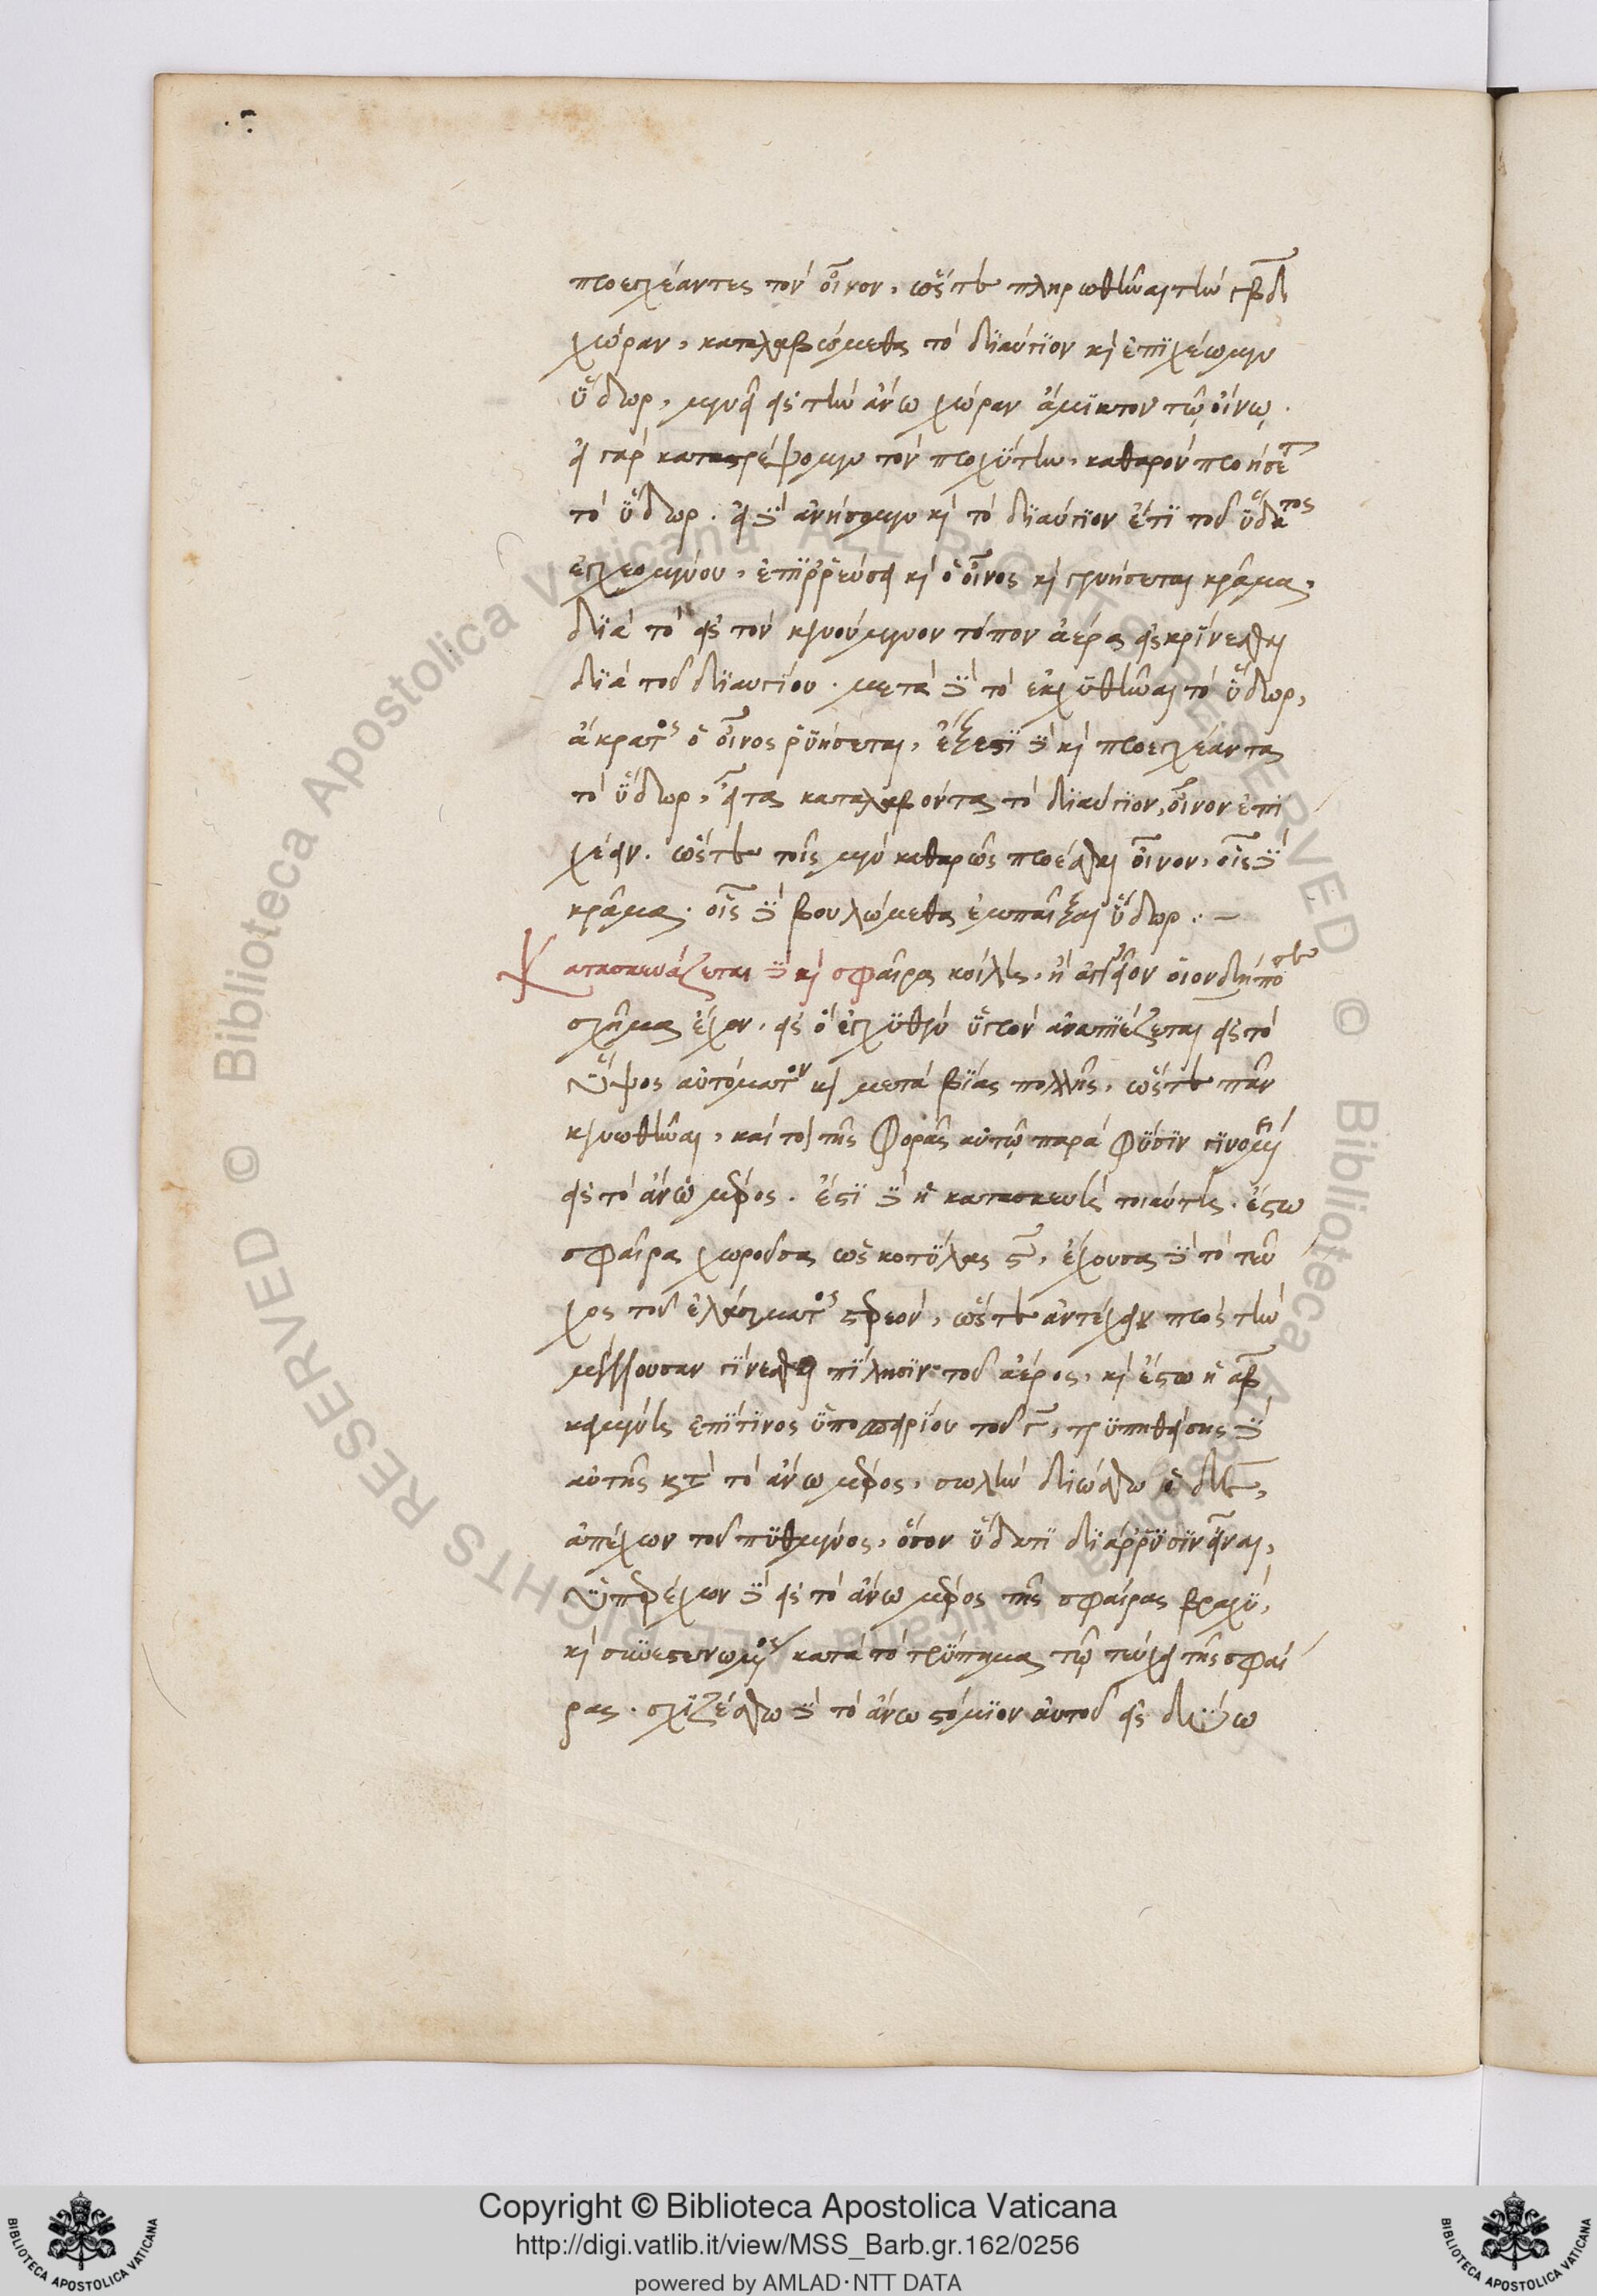 προεγχέαντες τὸν οἶνον, ὥστε πληρωθῆναι τὴν γβδε
χώραν, καταλαβώμεθα τὸ διαύγιον καὶ ἐπιχέωμεν
ὕδωρ, μενεῖ εἰς τὴν ἄνω χώραν ἄμικτον τῷ οἴνῳ.
εἰ γὰρ καταστρέψομεν τὸν προχύτην, καθαρὸν προήσεται
τὸ ὕδωρ. εἰ δὲ ἀνήσομεν καὶ τὸ διαύγιον ἔτι τοῦ ὕδατος
ἐγχεομένου, ἐπιρρεύσει καὶ ὁ οἶνος καὶ γενήσεται κρᾶμα,
διὰ τὸ εἰς τὸν κενούμενον τόπον ἀέρα εἰσκρίνεσθαι
διὰ τοῦ διαυγίου. μετὰ δὲ τὸ ἐκχυθῆναι τὸ ὕδωρ,
ἄκρατος ὁ οἶνος ῥυήσεται, ἔξεστι δὲ καὶ προεγχέαντα
τὸ ὕδωρ, εἶτα καταλαβόντα τὸ διαύγιον, οἶνον ἐπι
χέειν. ὥστε τοῖς μὲν καθαρῶς προέσθαι οἶνον, οἷς δὲ
κρᾶμα. οἷς δὲ βουλώμεθα ἐμπαῖξαι ὕδωρ. —
Κατασκευάζεται δὲ καὶ σφαῖρα κοίλη, ἢ ἀγγεῖον οἱονδήποτε
σχῆμα ἔχον, εἰς ὃ ἐγχυθὲν ὑγρὸν ἀναπιέζεται εἰς τὸ
ὕψος αὐτόματον καὶ μετὰ βίας πολλῆς, ὥστε πᾶν
κενωθῆναι, καίτοι τῆς φορᾶς αὐτῷ παρὰ φύσιν γινομένης
εἰς τὸ ἄνω μέρος. ἔστι δὲ ἡ κατασκευὴ τοιαύτη. ἔστω
σφαῖρα χωροῦσα ὡς κοτύλας ϛ, ἔχουσα δὲ τὸ τεῦ
χος τοῦ ἐλάσματος στερεὸν, ὥστε ἀντέχειν πρὸς τὴν
μέλλουσαν γίνεσθαι πίλησιν τοῦ ἀέρος, καὶ ἔστω ἡ αβ
κειμένη ἐπί τινος ὑποσφαιρίου τοῦ γ, τρυπηθείσης δὲ
αὐτῆς κατὰ τὸ ἄνω μέρος, σωλὴν διώσθω ὁ δε,
ἀπέχων τοῦ πυθμένος, ὅσον ὕδατι διάρρυσιν εἶναι,
ὑπερέχων δὲ εἰς τὸ ἄνω μέρος τῆς σφαίρας βραχὺ,
καὶ συνεστεγνωμένος κατὰ τὸ τρύπημα τῷ τεύχει τῆς σφαί
ρας. σχιζέσθω δὲ τὸ ἄνω στόμιον αὐτοῦ εἰς δύο
Copyright © Biblioteca Apostolica Vaticana
http://digi.vatlib.it/view/MSS_Barb.gr.162/0256
powered by AMLAD·NTT DATA